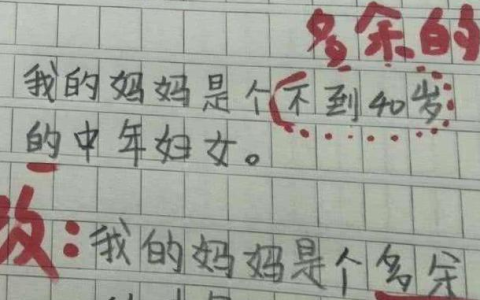 多余的
我的妈妈是个(不到40岁
的中年妇女。
改:我的妈妈是个多余